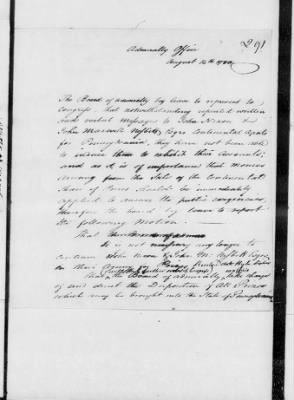 291
Admiralty Office
August 14th 1780
The Board of admiralty beg leave to represent to
Congress, that notwithstanding repeated written
and verbal messages to John Nixon &
John Maxwell Nesbitt, Esqrs Continental Agents
for Pennsylvania, they have not been able
to induce them to exhibit their Accounts;
and as it is of importance that Monies
arising from the Sale of the Continental
share of Prizes should be immediately
applied to answer the public exigencies
therefore the board beg leave to report
the following Motion
That
It is not necessary any longer to
continue John Nixon & John M. Nesbitt Esqrs
in their Agency for
That the Board of admiralty take charge
of and direct the Disposition of All Prizes
which may be brought into the State of Pennsylvania